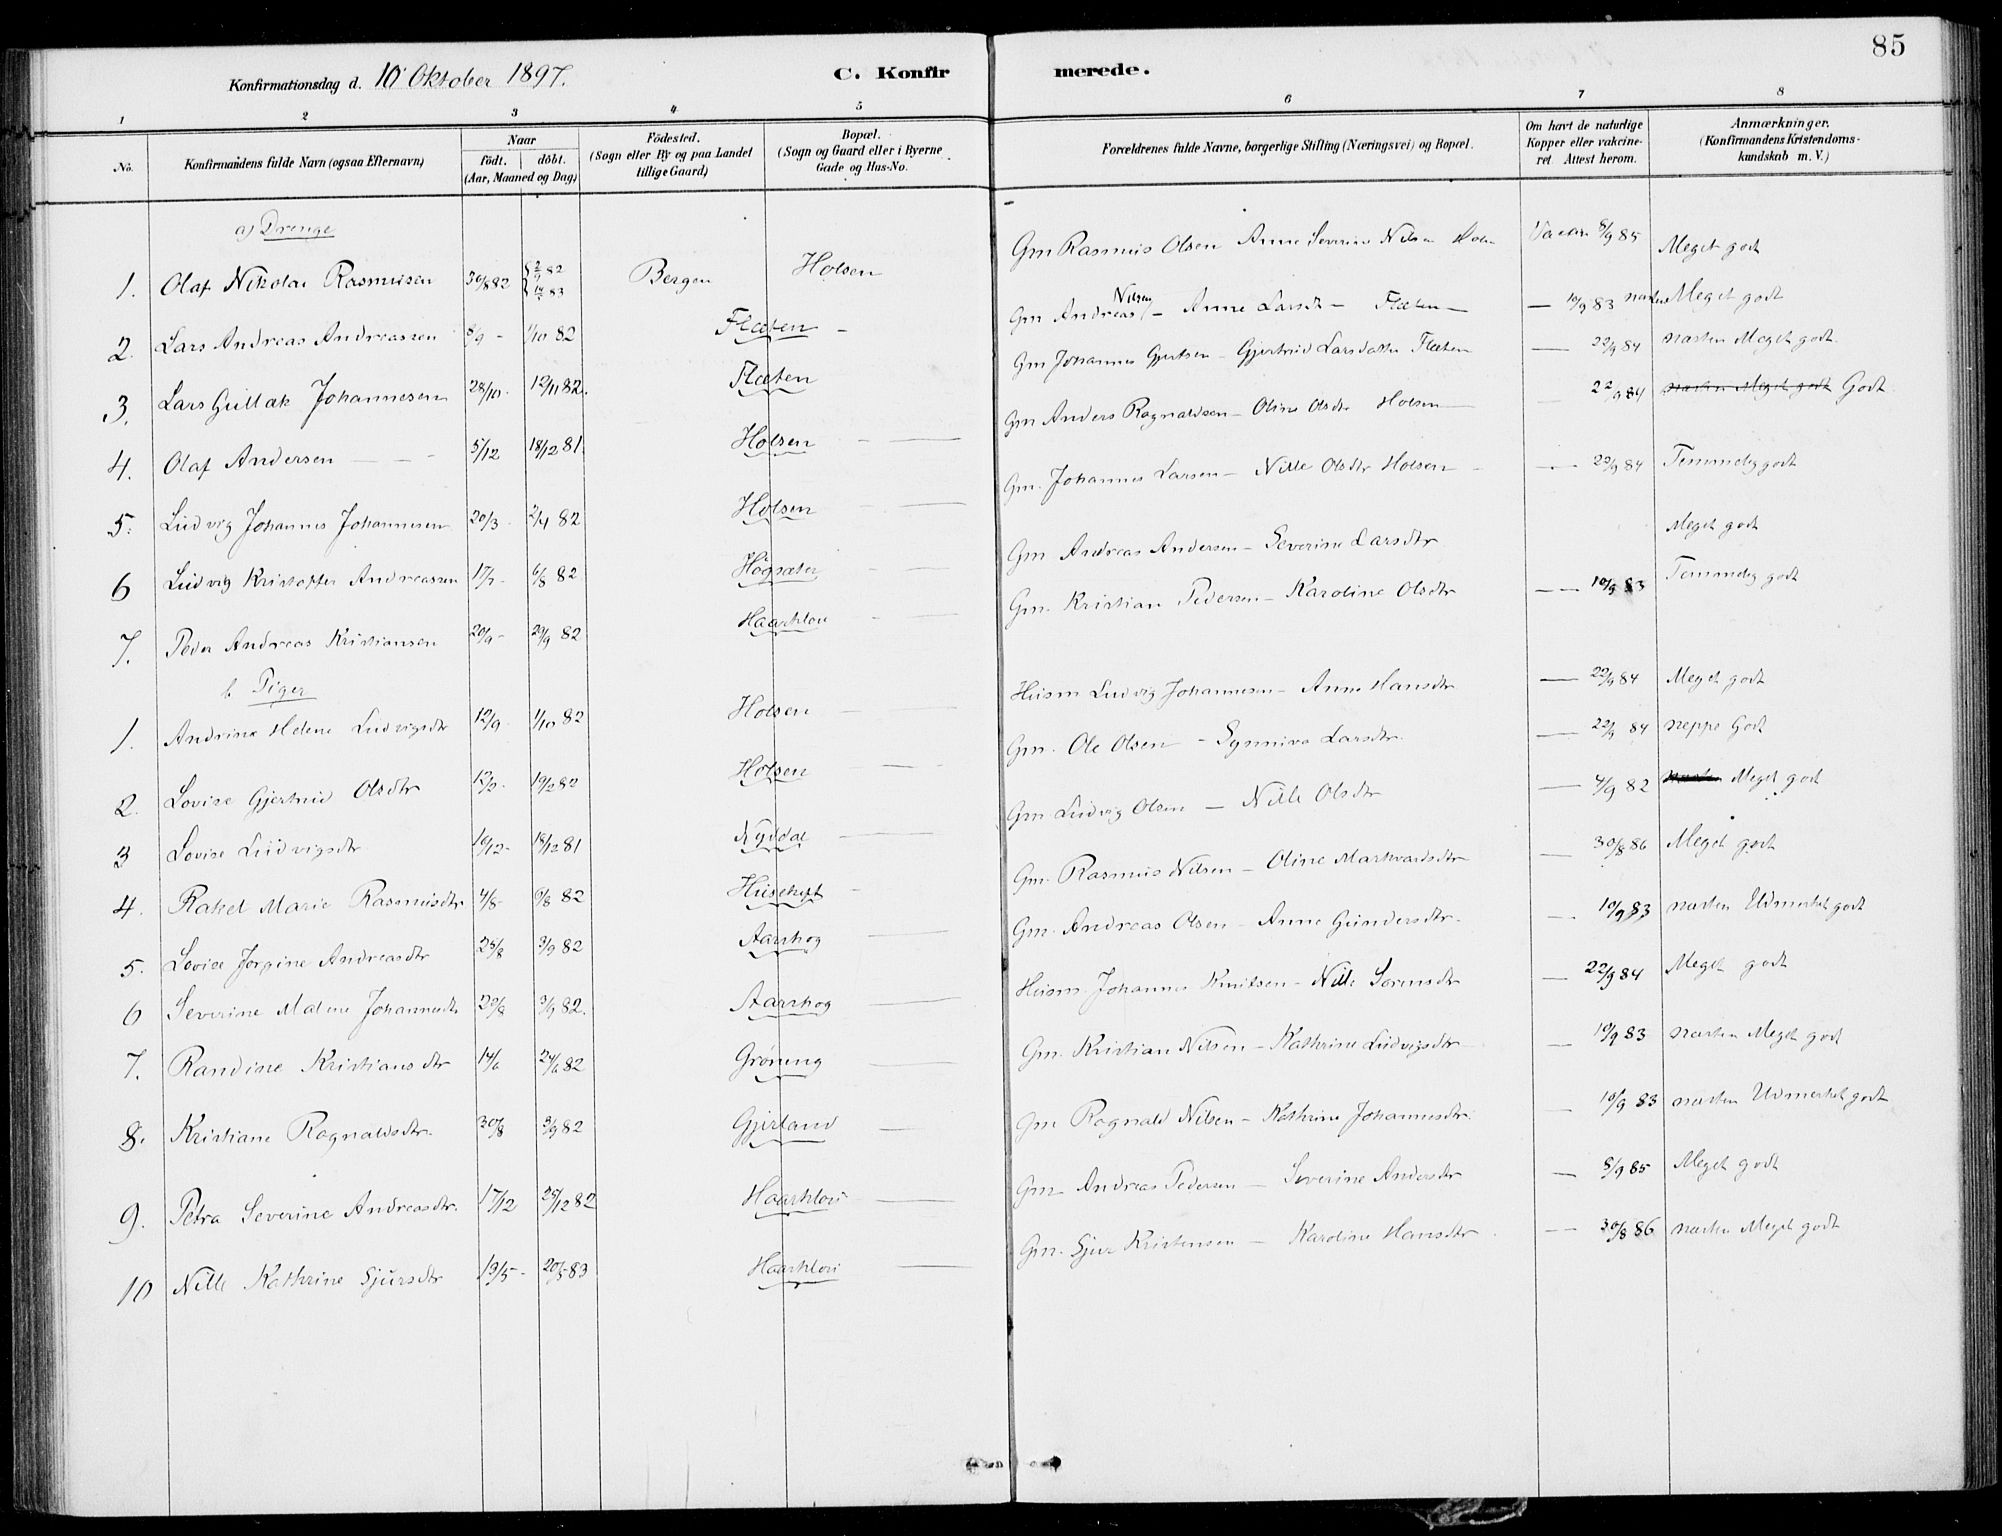 85
Konfirmationsdag d. 10 Oktober 1897.
C. Konfirmerede.
1 2 3 4 5 6 7 8
No.
Konfirmandens fulde Navn (ogsaa Efternavn)
Naar
födt. döbt.
(Aar, Maaned og Dag)
Födested.
(Sogn eller By og paa Landet
tillige Gaard)
Bopæl.
(Sogn og Gaard eller i Byerne
Gade og Hus-No.
Forældrenes fulde Navne, borgerlige Stilling (Næringsvei) og Bopæl.
Om havt de naturlige
Kopper eller vakcine-
ret. Attest herom.
Anmærkninger.
(Konfirmandens Kristendoms-
kundskab m. V.)
a) Drenge
1. Olaf Nikolai Rasmusen 30/8 82 2/9 82 14/1 83 Bergen Holsen Gm Rasmus Olsen Anne Severine Nilsen 8/9 85 Meget godt
2. Lars Andreas Andreassen 8/9 - 1/10 82 Flæten - Gm Andreas Nilsen - Anne Larsdt - Flæten - — 10/9 83 næsten Meget godt
3. Lars Gullak Johannesen 28/10 12/11 82. Flæten Gm Johannes Gjertsen - Gjertrud Larsdatter Flæten — 22/9 84 næsten Meget godt.
4. Olaf Andersen — - - 5/12 18/12 81. Holsen - — Gm Anders Ragnaldsen - Oline Olsdtr Holsen — 22/9 84 næsten Meget godt Godt
5. Ludvig Johannes Johannesen 20/3 2/4 82 Holsen - — Gm. Johannes Larsen - Nille Olsdtr Holsen — 22/9 84 Temmelig godt
6 Ludvig Kristoffer Andreassen 17/7 - 6/8 82 Högsæter - — Gm Andreas Andersen - Severine Larsdtr Meget godt
7. Peder Andreas Kristiansen 20/9 - 29/9 82 Haarklou - — Gm. Kristian Pedersen - Karoline Olsdtr — 10/9 83 Temmelig godt
b. Piger
1. Andrine Helene Ludvigsdtr 12/9 1/10 82 Holsen — Husm Ludvig Johannesen - Anne Hansdtr — 22/9 84 Meget godt
2. Lovise Gjertrud Olsdtr 12/2 - 19/2 82 Holsen - — Gm. Ole Olsen - Synniva Larsdtr. — 22/9 84 neppe Godt
3 Lovise Ludvigsdtr 10/12 - 18/12 81 Nydal — Gm Ludvig Olsen — Nille Olsdtr — 4/9 82 Meget godt
4. Rakel Marie Rasmusdtr 4/8 - 6/8 82 - Gm. Rasmus Nilsen - Oline Markvardsdtr — 30/8 86 Meget godt
5. Lovise Jorgine Andreasdtr 25/8 3/9 82 Aarskog — Gm. Andreas Olsen - Anne Gundersdtr. — 10/9 83 næsten Udmerket godt
6 Severine Malene Johannesdtr 20/8 3/9 82. Aarskog — Husm. Johannes Knutsen - Nille Sorensdtr — 22/9 84 Meget godt
7. Randine Kristiansdtr 14/6 24/6 82 Gröning — Gm. Kristian Nilsen - Kathrine Ludvigsdtr — 10/9 83 næsten Meget godt
8. Kristiane Ragnaldsdtr. 30/8 3/9 82 Gjerland — Gm Ragnald Nilsen - Kathrine Johannesdtr. — 10/9 83 næsten Udmerket godt
9. Petra Severine Andreasdtr. 17/12 25/12 82 Haarklou — Gm Andreas Pedersen — Severine Andersdtr — 8/9 85 Meget godt
10 Nille Kathrine Sjursdtr 13/5 - 20/5 83 Haarklou — Gm. Sjur Kristensen — Karoline Hansdtr. — 30/8 86 næsten Meget godt